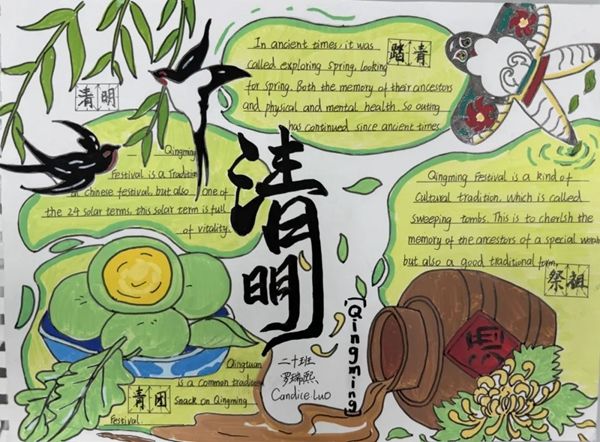 清明
Qingming
Festival is a Tradition
al Chinese festival, but also One of
the 24 solar terms, this solar term is full
of vitality.
In ancient times, it was
called exploring Spring, looking
for spring. Both the memory of their ancestors
and physical and mental health. So outing
has continued since ancient times.
踏青
清明
[Qingming]
Qingming Festival is a kind of
Cultural tradition, which is called
sweeping tombs. This is to cherish the
memory of the ancestors of a special
but also a good traditional form.
祭祖
酒
Qingtuan
is a common traditional
Snack on Qingming
Festival.
青团
二十班
罗瑞熙
Candice Luo